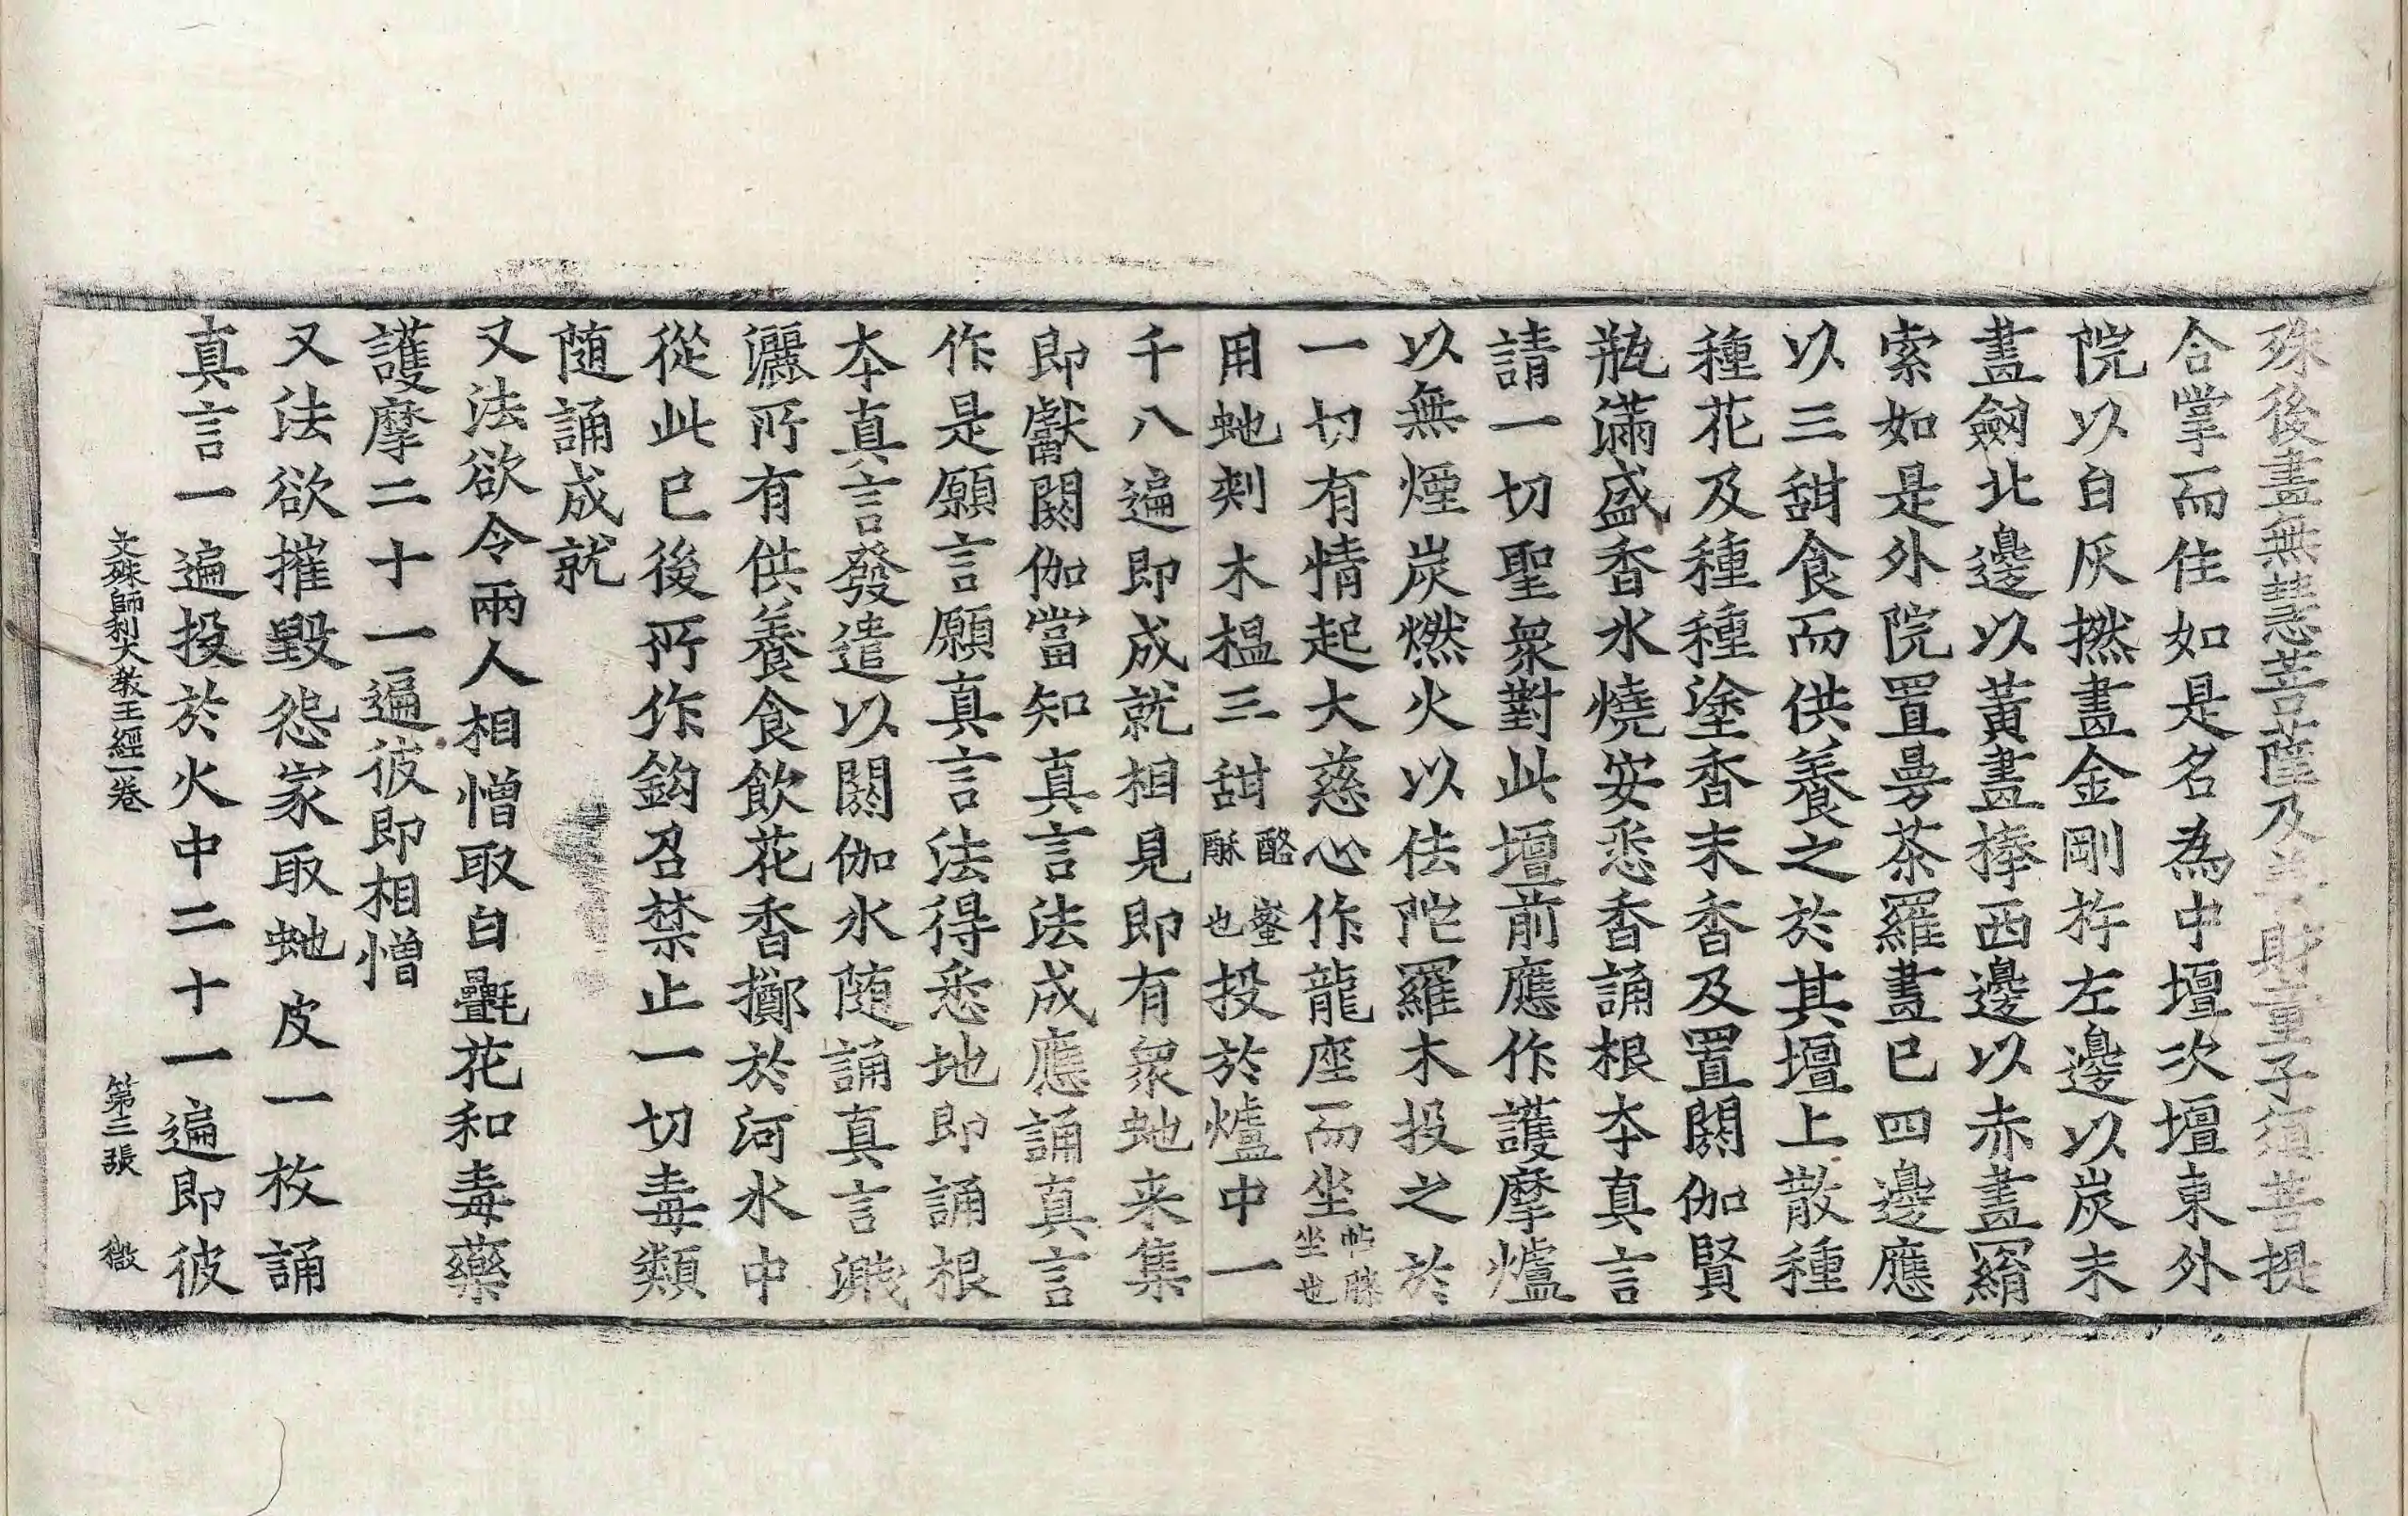 殊後畫無慧菩薩及善財童子須菩提
合掌而住如是名為中壇次壇東外
院以白灰撚畫金剛杵左邊以炭末
畫劒北邊以黃畫捧西邊以赤畫羂
索如是外院置曼茶羅畫已四邊應
以三甜食而供養之於其壇上散種
種花及種種塗香末香及置閼伽賢
瓶滿盛香水燒安悉香誦根本真言
請一切聖衆對此壇前應作護摩爐
以無煙炭燃火以佉陀羅木投之於
一切有情起大慈心作龍座而坐帖膝坐也
用虵剌木榅三甜酪蜜酥也投於爐中一
千八遍即成就相見即有衆虵来集
即獻閼伽當知真言法成應誦真言
作是願言願真言法得悉地即誦根
本真言發遣以閼伽水随誦真言濺
灑所有供養食飲花香擲於河水中
從此已後所作鈎召禁止一切毒類
随誦成就
又法欲令兩人相憎取白㲲花和毒藥
護摩二十一遍彼即相憎
又法欲摧毀怨家取虵皮一枚誦
真言一遍投於火中二十一遍即彼
文殊師利大教王經一卷 第三張 㣲